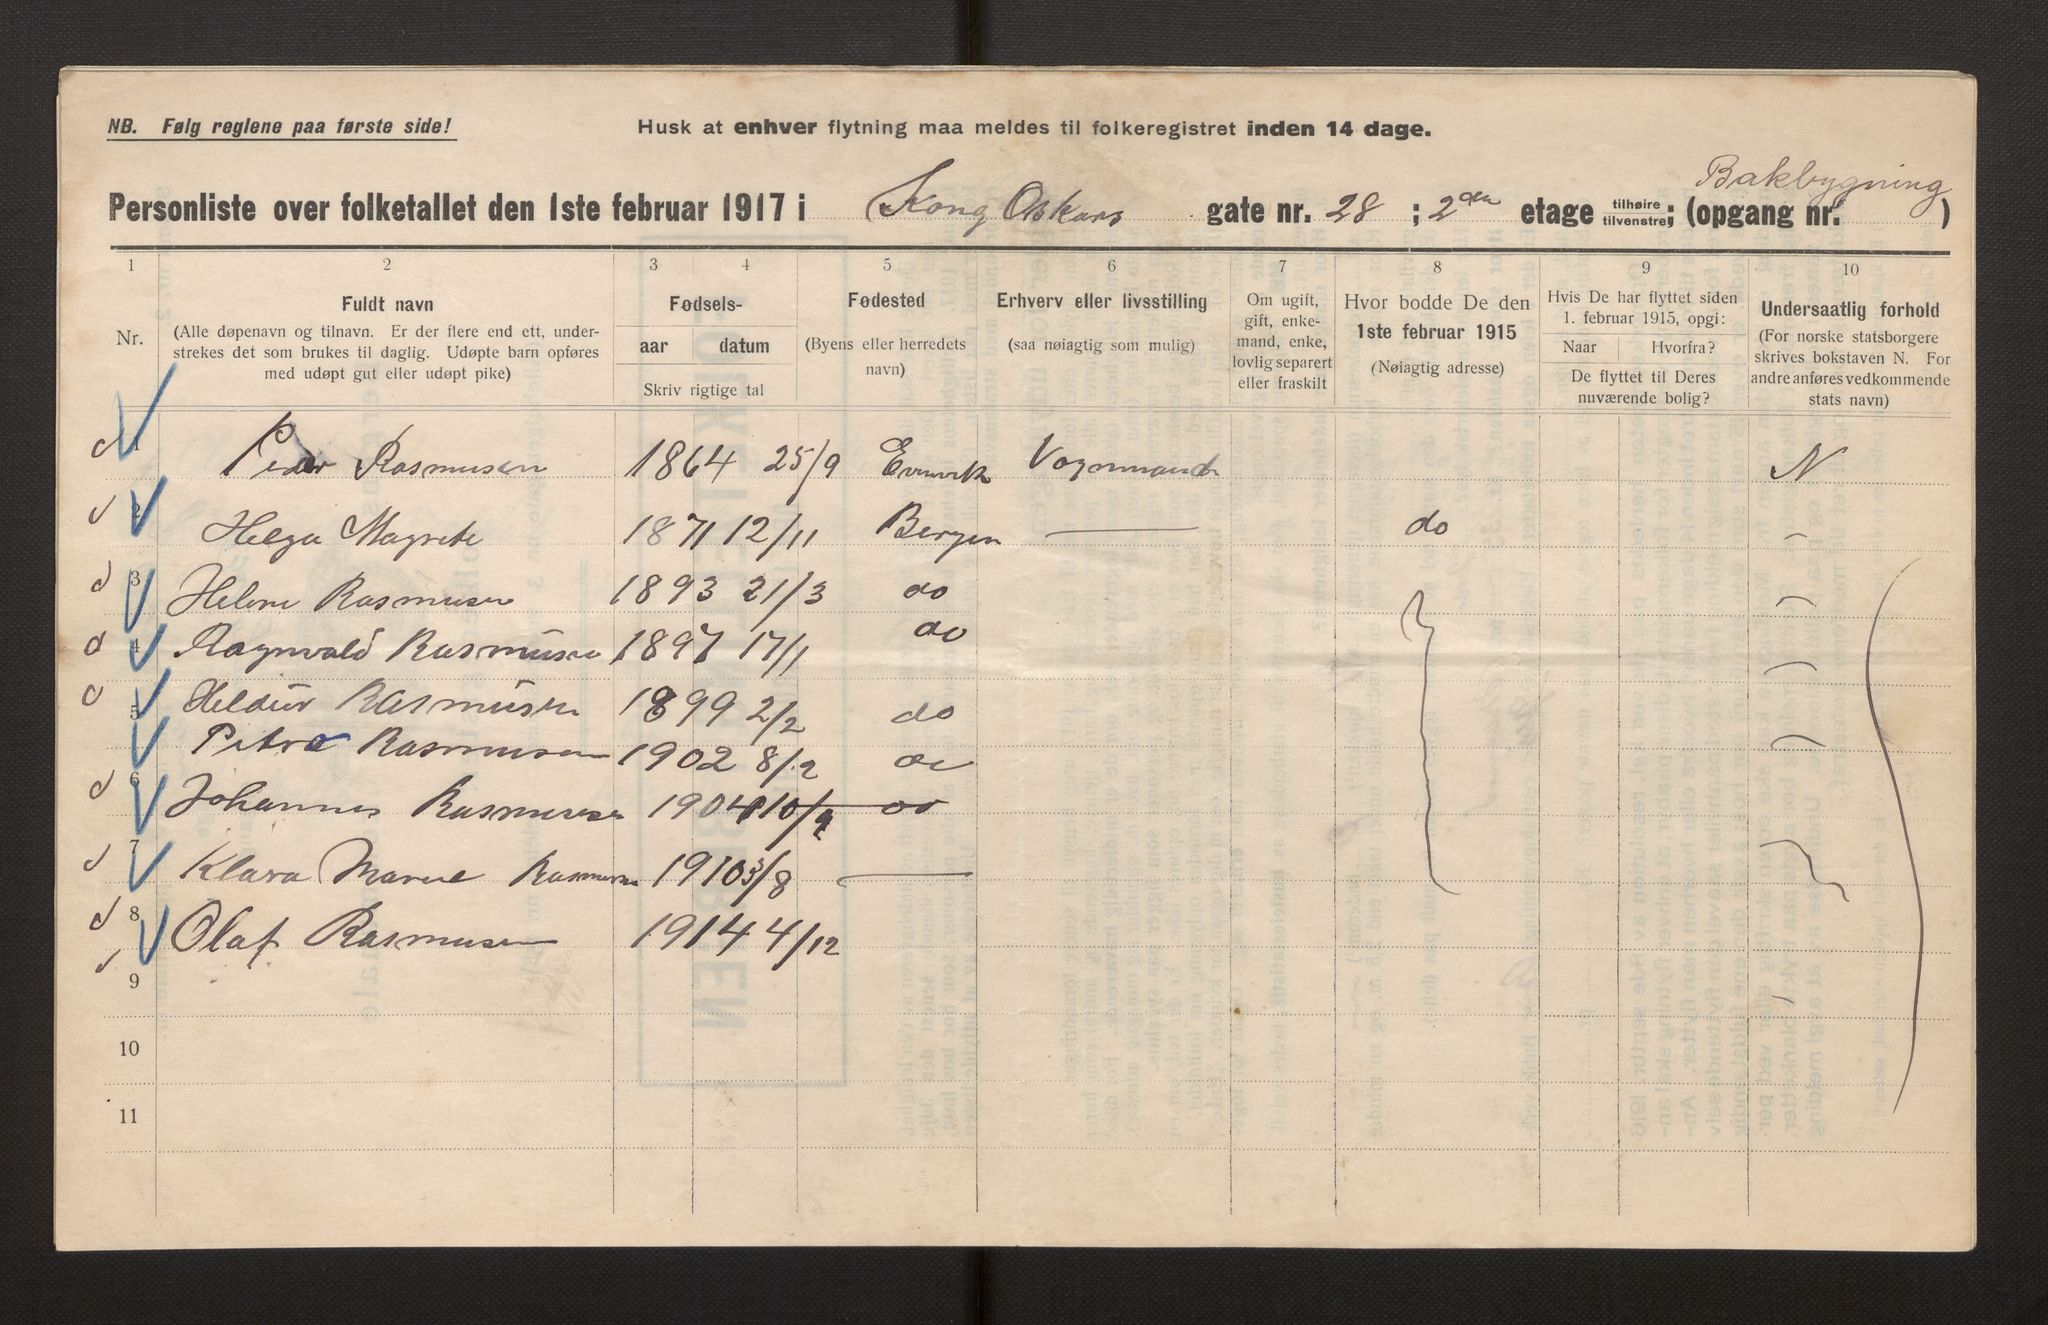 NB. Følg reglene paa første side!
Husk at enhver flytning maa meldes til folkeregistret inden 14 dage.
Personliste over folketallet den 1ste februar 1917 i Kong Oskars gate nr. 28 ; 2den etage tilhøire tilvenstre; (opgang nr. Bakbygning )
1 2 3 4 5 6 7 8 9 10
Nr.
Fuldt navn
(Alle døpenavn og tilnavn. Er der flere end ett, under-
strekes det som brukes til daglig. Udøpte barn opføres
med udøpt gut eller udøpt pike)
Fødsels-
aar datum
Skriv rigtige tal
Fødested
(Byens eller herredets
navn)
Erhverv eller livsstilling
(saa nøiagtig som mulig)
Om ugift,
gift, enke-
mand, enke,
lovlig separert
eller fraskilt
Hvor bodde De den
1ste februar 1915
(Nøiagtig adresse)
Hvis De har flyttet siden
1. februar 1915, opgi:
Naar Hvorfra?
De flyttet til Deres
nuværende bolig?
Undersaatlig forhold
(For norske statsborgere
skrives bokstaven N. For
andre anføres vedkommende
stats navn)
1 Peder Rasmusen 1864 25/9 Evenvik Vognmand N
2 Helga Magrete 1871 12/11 Bergen — do
3 Helene Rasmusen 1893 21/3 do
4 Ragnvald Rasmusen 1897 17/1 do
5 Heldur Rasmusen 1899 2/2 do
Petra Rasmusen 1902 8/2 do
6 Johannes Rasmusen 1904 10/9 do
7 Klara Marie Rasmusen 1910 3/8 —
8 Olaf Rasmusen 1914 4/12
9
10
11